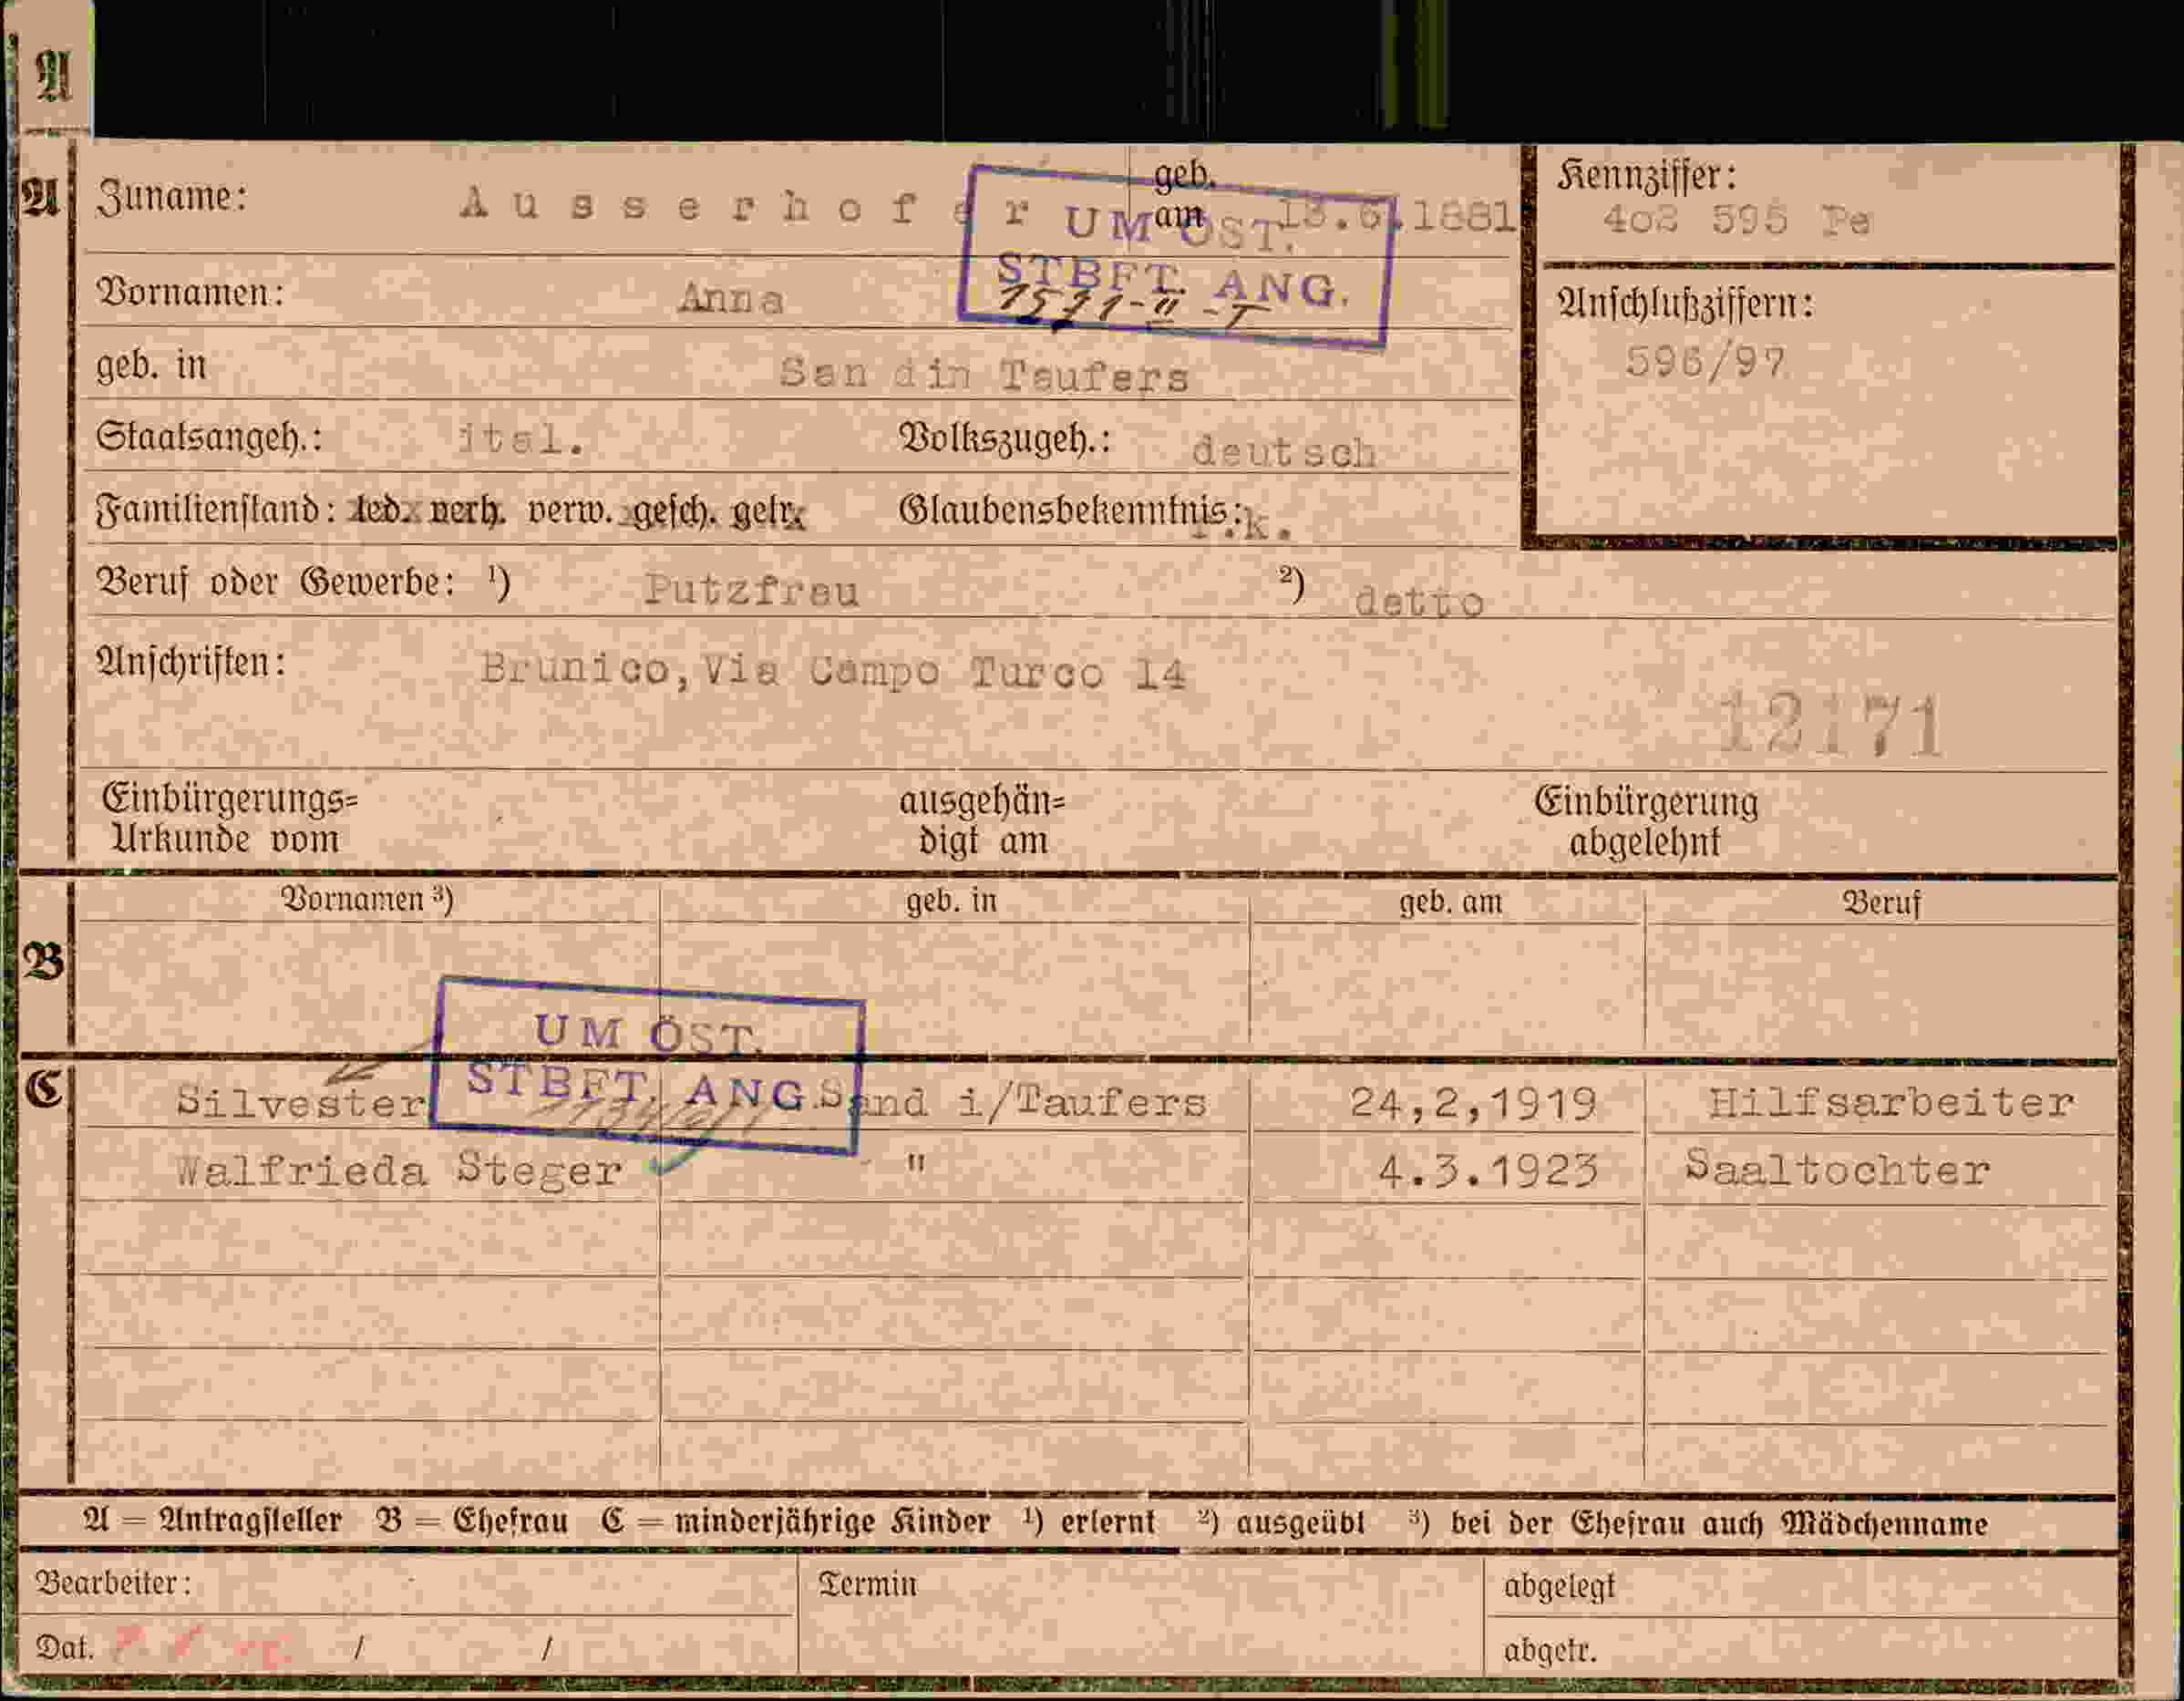 A
A
Zuname: Ausserhofer geb. am 13.6.1881
Kennziffer:
403 595 Pe
UM ÖST.
STBFT. ANG.
Vornamen: Anna
Anschlußziffern:
596/97
geb. in San din Taufers
Staatsangeh.: ital. Volkszugeh.: deutsch
Familienstand: led. verh. verw. gesch. getr. Glaubensbekenntnis: r.k.
Beruf oder Gewerbe: ¹) Putzfrau ²) detto
Anschriften: Brunico, Via Campo Turco 14
12171
Einbürgerungs= ausgehän= Einbürgerung
Urkunde vom digt am abgelehnt
Vornamen ³) geb. in geb. am Beruf
B
UM ÖST.
STBFT. ANG.
C
Silvester Sand i/Taufers 24,2,1919 Hilfsarbeiter
Walfrieda Steger " 4.3.1923 Saaltochter
A = Antragsteller B = Ehefrau C = minderjährige Kinder ¹) erlernt ²) ausgeübt ³) bei der Ehefrau auch Mädchenname
Bearbeiter: Termin abgelegt
Dat. / / abgetr.